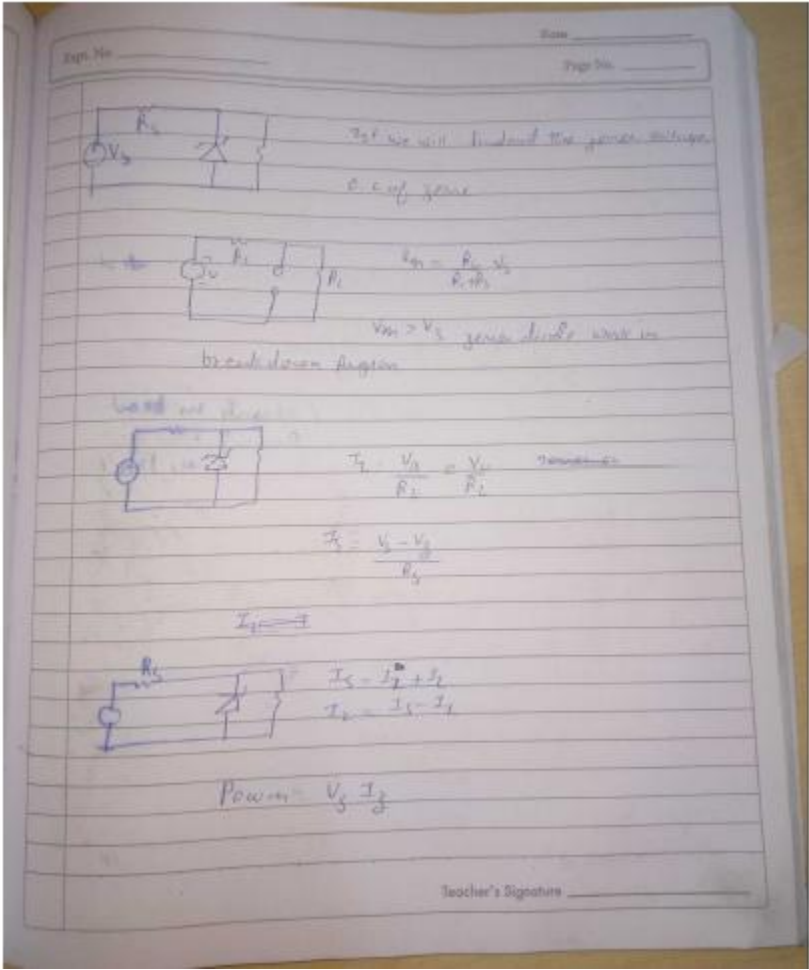 Date
Expt. No.
Page No.
R_s
V_s
1st we will the zener voltage
O.C of zener
R_L
V_th = R_L / (R_L+R_s) V_s
V_th > V_z zener diode work in
breakdown
I_L = V_0 / R_L = V_z / R_L
I_s = (V_s - V_z) / R_s
R_s
I_s = I_z + I_L
I_z = I_s - I_L
Power = V_z I_z
Teacher's Signature